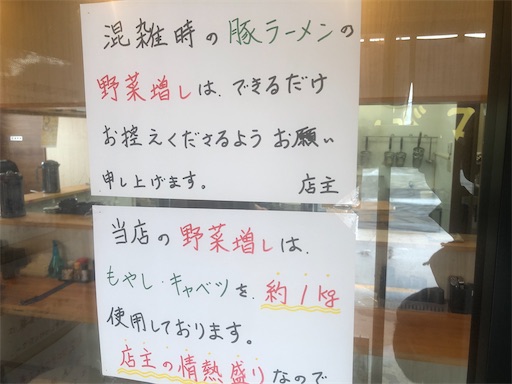 混雑時の豚ラーメンの
野菜増しは、できるだけ
お控えくださるようお願い
申し上げます。 店主
当店の野菜増しは、
もやし・キャベツを、約1kg
使用しております。
店主の情熱盛りなので